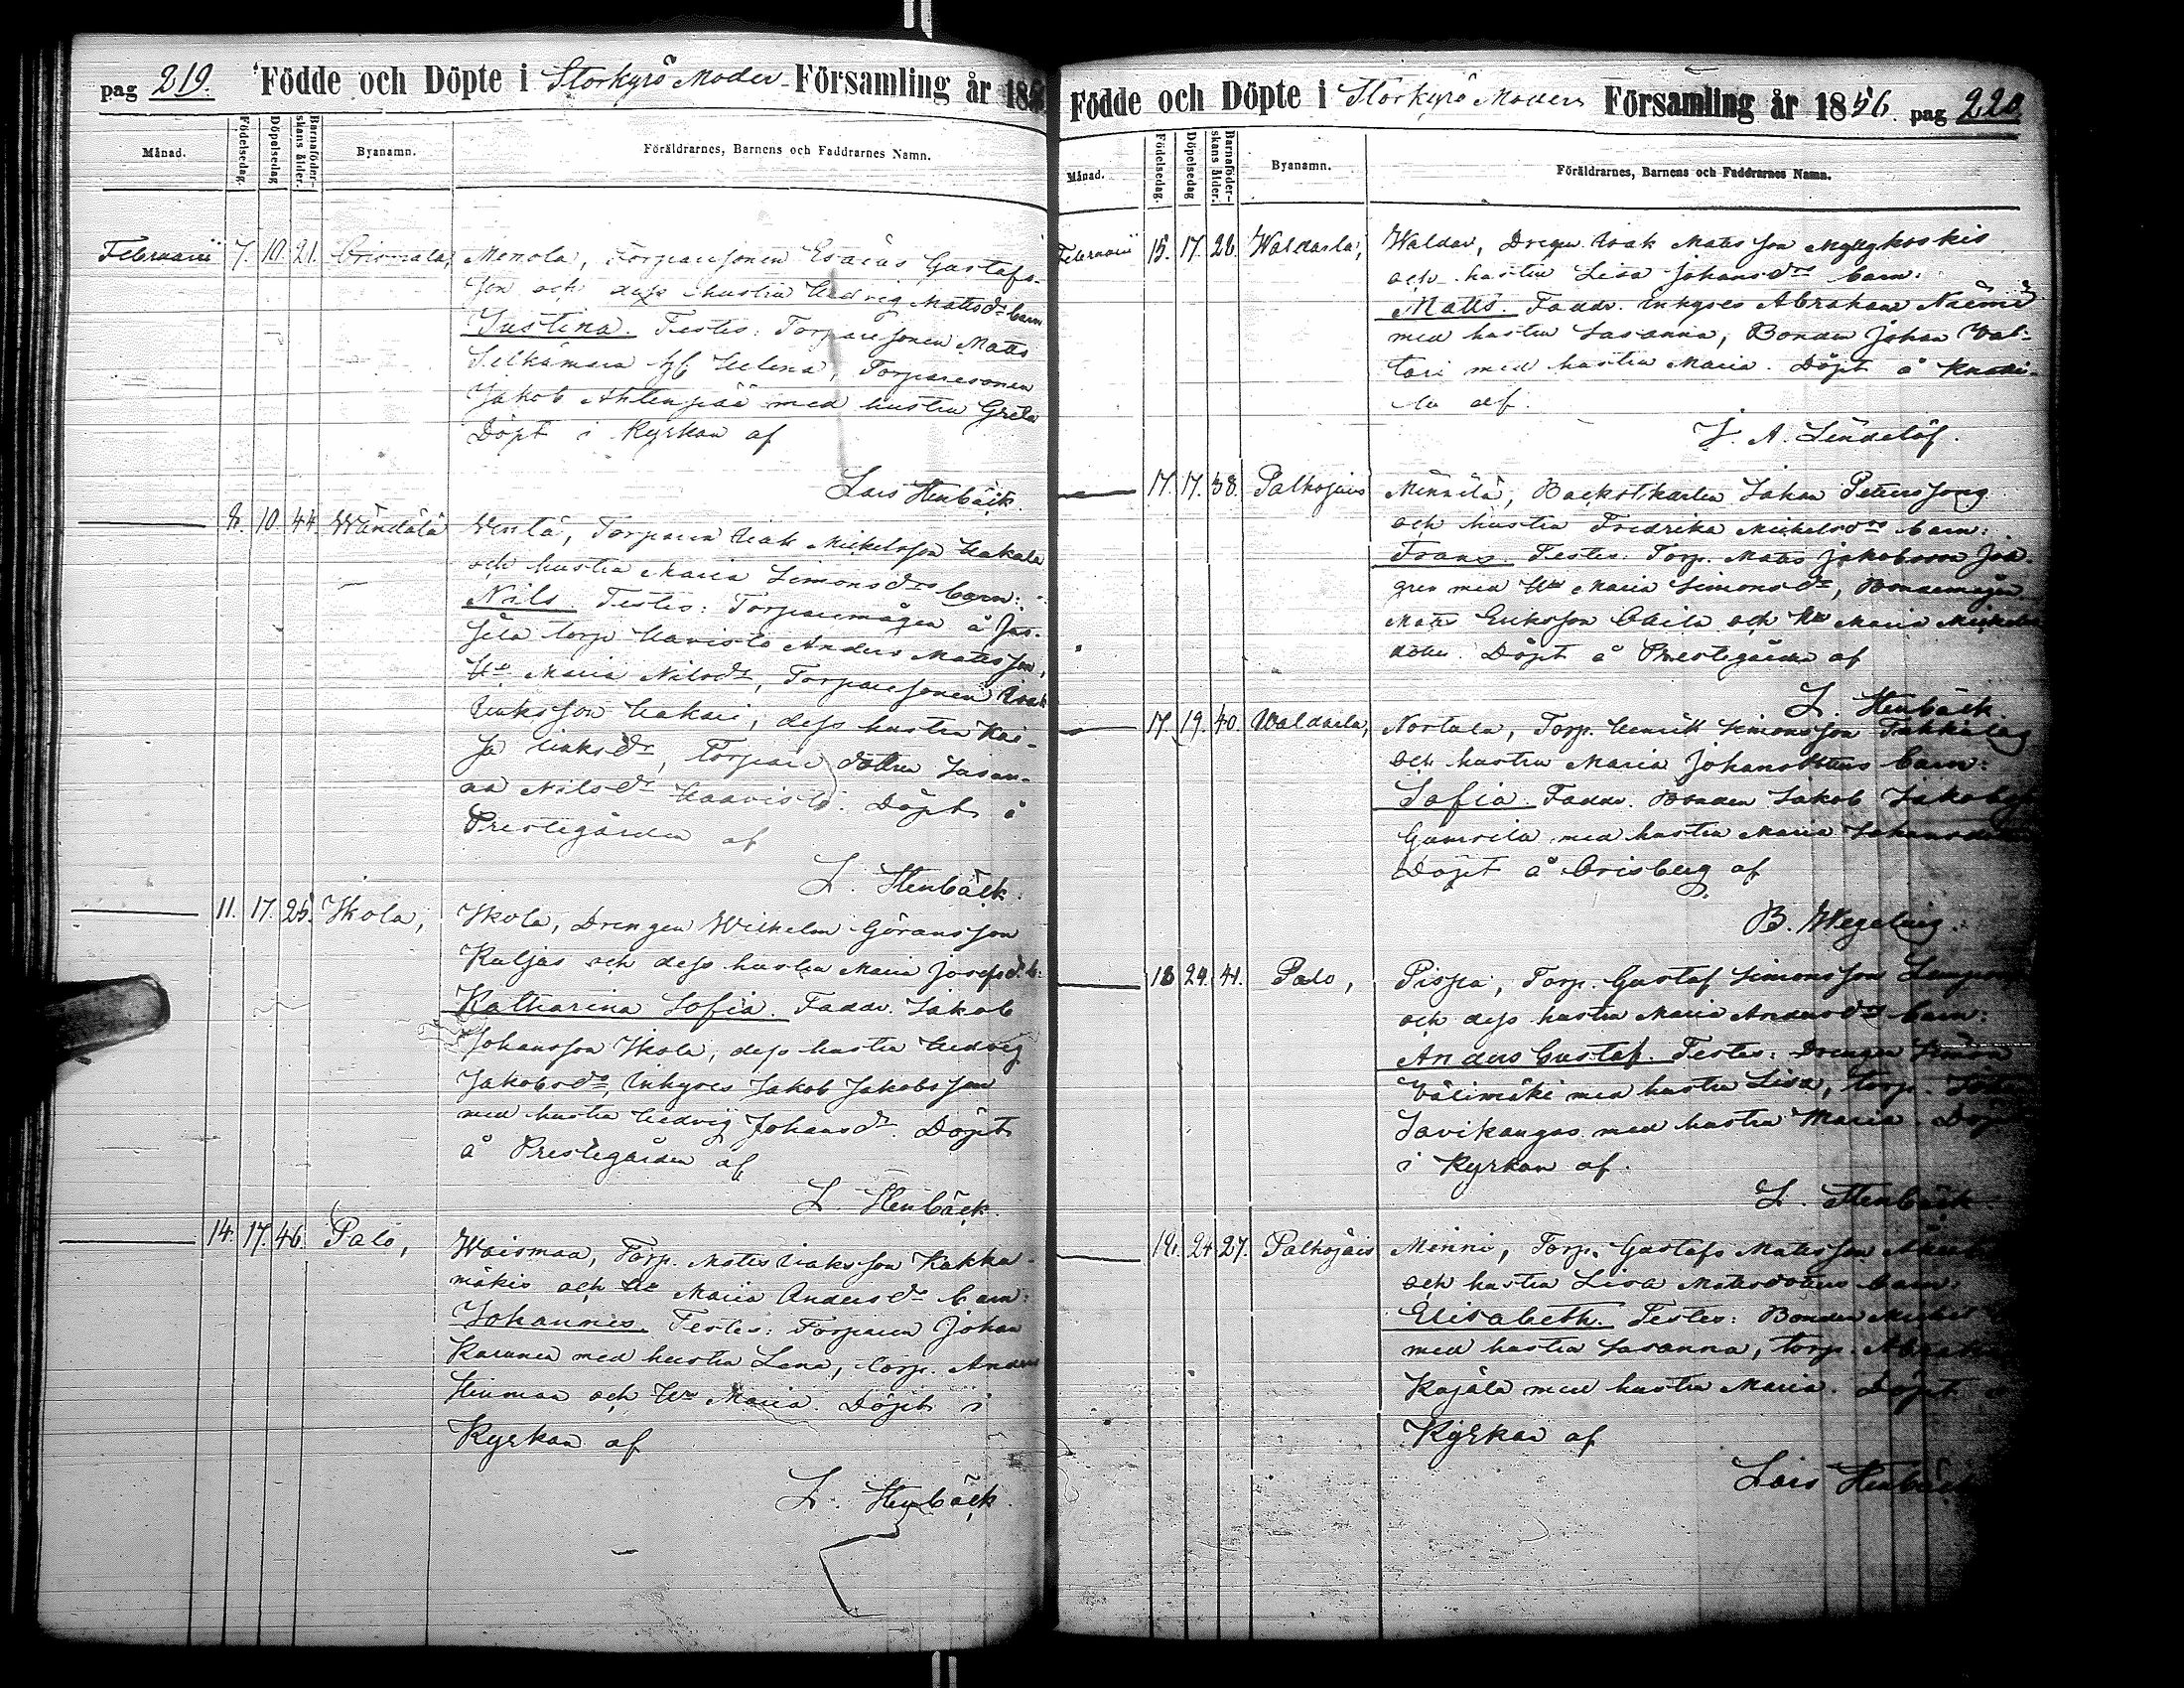 pag 219. Födde och Döpte i Storkyrö Moder Församling år 185
Månad. Födelsedag. Döpelsedag Barnaföderskans ålder. Byanamn. Föräldrarnes, Barnens och Faddrarnes Namn.
Februarii 7. 10. 21. Orismala, Menola, Torparesonen Esaias Gustafs-
son och dess hustru Hedvig Mattsdr barn
Justina. Testes: Torparesonen Matts
Selkämaa h Helena, Torparesonen
Jakob Ahtenpää med hustru Greta
Döpt i Kyrkan af
Lars Stenbäck.
8. 10. 44. Wändälä Wentä, Torparen Isak Mickelsson Hakala
och hustru Maria Simonsdrs barn:
Nils. Testes: Torparemågen å Jus-
sila torp Haavisto Anders Mattsson,
Hu Maria Nilsdr, Torparesonen Isak
Isaksson Hakari, dess hustru Kai-
sa Isaksdr, Torpare dottren Susan-
na Nilsdr Haavisto. Döpt å
Prestegården af
L. Stenbäck.
11. 17. 25. Ikola, Ikola, Drengen Wilhelm Göransson
Kuljas och dess hustru Maria Josefsdr b:
Katharina Sofia. Faddr. Jakob
Johansson Ikola, dess hustru Hedvig
Jakobsdr, Inhyses Jakob Jakobsson
med hustru Hedvig Johansdr. Döpt
å Prestegården af
L. Stenbäck.
14. 17. 46. Palo, Waismaa, Torp. Matts Isaksson Kakku-
mäkis och Hu Maria Andersdrs barn:
Johannes. Testes: Torparen Johan
Karunen med hustru Lena, torp. Anders
Hinmaa och Hu Maria. Döpt i
Kyrkan af
L. Stenbäck.
Födde och Döpte i Storkyrö Moders Församling år 1856. pag 220
Månad. Födelsedag. Döpelsedag Barnaföderskans ålder. Byanamn. Föräldrarnes, Barnens och Faddrarnes Namn.
Februarii 15. 17. 26. Waldarla, Waldar, Drgn Isak Mattsson Myllykoskis
och hustru Lisa Johansdrs barn:
Matts. Faddr. Inhyses Abraham
med hustru Susanna, Bonden Johan Val-
tari med hustru Maria. Döpt å
la af.
J. A. Lindelöf.
17. 17. 38. Palhojais Minnilä, Backstkarlen Johan Peterssons
och hustru Fredrika Mickelsdrs barn:
Frans. Testes: Torp. Matts Jakobsson Jåf-
gren med Hu Maria Simonsdr, Bondemågen
Matts Eriksson Obila och Hu Maria Mickels
dotter. Döpt å Prestegården af
L. Stenbäck
17. 19. 40. Waldarla, Nortala, Torp. Henrik Simonsson
och hustru Maria Johansdotters barn:
Sofia. Faddr. Bonden Jakob Jakobss
Gumsila med hustru Maria Johansdr
Döpt å Orisberg af
B. Wegelius.
18 24. 41. Palo, Pispa, Torp. Gustaf Simonsson
och dess hustru Maria Andersdrs barn:
Anders Gustaf. Testes: Drengen Simon
Välimäki med hustru Lisa, torp.
Savikangas med hustru Maria. Döpt
i Kyrkan af.
L. Stenbäck
18. 24 27. Palhojais Minni, Torp. Gustafs Mattsson
och hustru Lisa Mattsdotters barn:
Elisabeth. Testes: Bonden Mickel
med hustru Susanna, torp.
Kojala med hustru Maria. Döpt
Kyrkan af
Lars Stenbäck